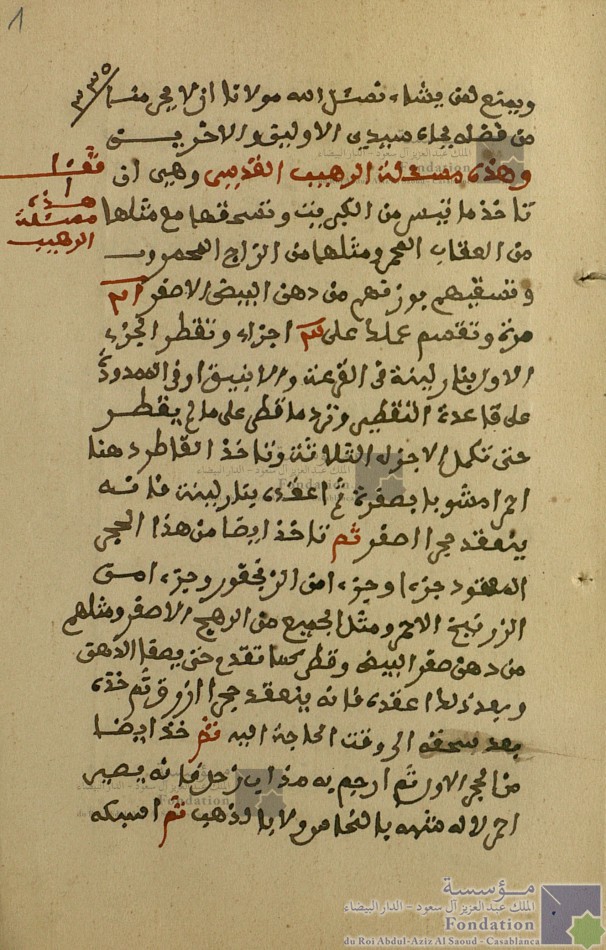 1
٣٣٥
ويمنع لمن يشاء نسئل الله مولانا ان لا يحرمنا
من فضله بجاه سيدي الاولين والاخريـــن
وهذه مسئلة الرهيب القدسي وهي ان
تاخذ ما تيسر من الكبريت وتسحقها مع مثلها
من العقاب المحمر ومثلها من الزاج المحمور
وتسقيهم بوزنهم من دهن البيض الاصفر
مرة وتقسم عملك على اجزاء وتقطر الجزء
الاول بنار لينة في القرعة والانبيق او في الممدودة
على قاعدة التقطير وترد ما قطر على ما لم يقطـر
حتى تكمل الاجزاء الثلاثة وتاخذ القاطر دهنا
احمرا مشوبا بصفرة ثم اعقده بنار لينة فانــه
ينعقد حجرا اصفر ثم تاخذ ايضا من هذا الحجر
المعقود جزءا وجزءا من الزنجفور وجزءا مــن
الزرنيخ الاحمر ومثل الجميع من الرهج الاصفر ومثلهم
من دهن صفر البيض وقطر كما تقدم حتى يصفا الدهن
وبعد ذلك اعقده فانه ينعقد حجرا ازرق ثم خذه
بعد سحقه الى وقت الحاجة اليه ثم خذ ايضا
من الحجر الاول ثم ارجم به مذاب زحل فانه يصير
احمر لا له منهه بالنحاس ولا بالذهب ثم اسبكه
هذه
مسئلة
الرهيب
مؤسسة
الملك عبد العزيز آل سعود - الدار البيضاء
Fondation
du Roi Abdul-Aziz Al Saoud - Casablanca